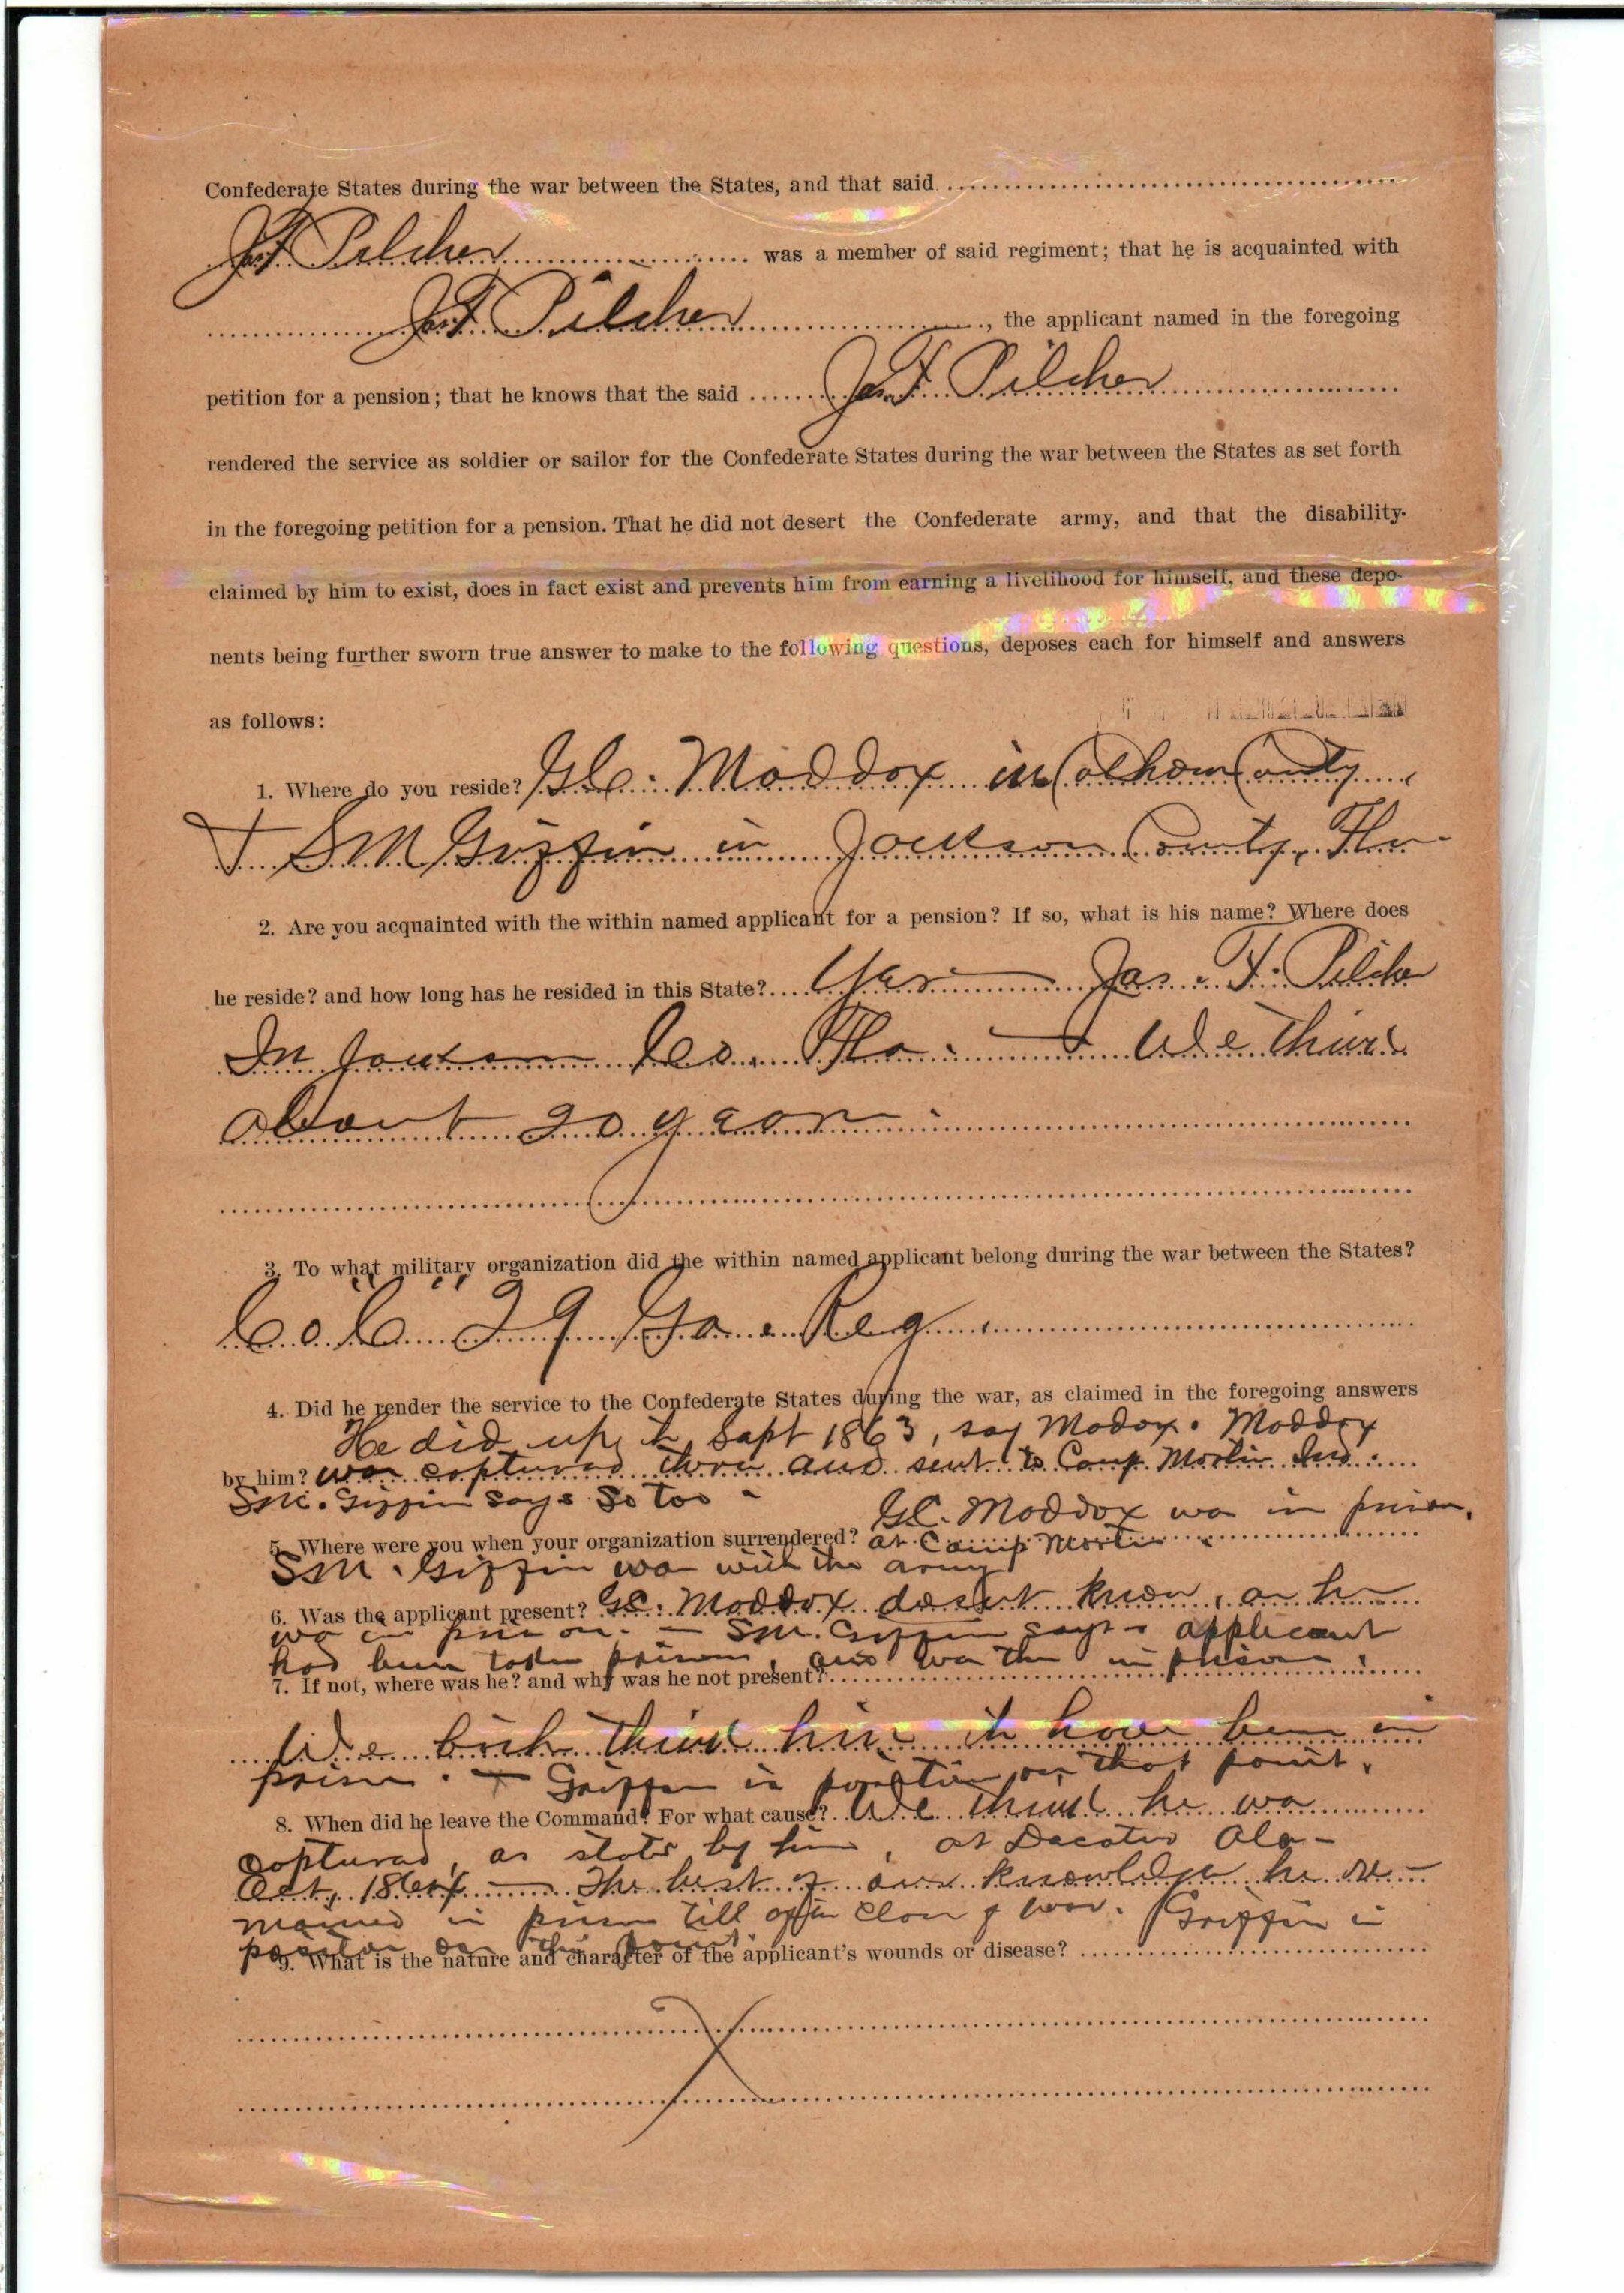 Confederate States during the war between the States, and that said
Jas F Pilcher was a member of said regiment; that he is acquainted with
Jas F Pilcher, the applicant named in the foregoing
petition for a pension; that he knows that the said Jas F. Pilcher
rendered the service as soldier or sailor for the Confederate States during the war between the States as set forth
in the foregoing petition for a pension. That he did not desert the Confederate army, and that the disability
claimed by him to exist, does in fact exist and prevents him from earning a livelihood for himself, and these depo-
nents being further sworn true answer to make to the following questions, deposes each for himself and answers
as follows:
1. Where do you reside? G.C. Maddox in Calhoun County,
+ SM Griffin in Jackson County, Fla
2. Are you acquainted with the within named applicant for a pension? If so, what is his name? Where does
he reside? and how long has he resided in this State? Yes — Jas. F. Pilcher
In Jackson Co. Fla. — We think
about 20 years.
3. To what military organization did the within named applicant belong during the war between the States?
Co "C" 29 Ga. Reg.
4. Did he render the service to the Confederate States during the war, as claimed in the foregoing answers
He did up to Sept 1863, say Madox. Maddox
by him? was captured then and sent to Camp Morton Ind.
SM. Griffin says so too -
G.C. Maddox was in prison,
5. Where were you when your organization surrendered? at Camp Morton.
SM. Griffin was with the army
6. Was the applicant present? G.C. Maddox doesnt know, as he
was in prison. — SM. Griffin says applicant
had been taken prisoner, and was then in prison.
7. If not, where was he? and why was he not present?
We both think him to have been in
prison. — Griffin is positive on that point.
8. When did he leave the Command? For what cause? We think he was
captured, as stated by him, at Decatur Ala -
Oct, 1864 — The best of our knowledge he re-
mained in prison till after close of war. Griffin is
positive on this point.
9. What is the nature and character of the applicant's wounds or disease?